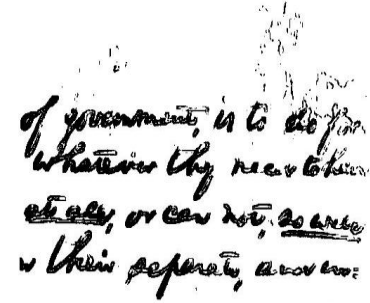 of government, is to do for
whatever they need to have
at all, or can not, so well
in their separate, and in